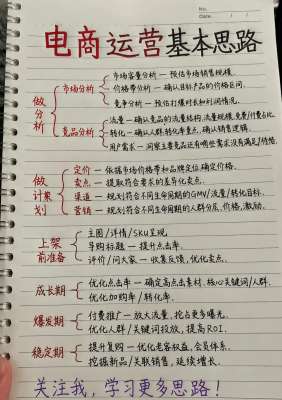 No.
Date. / /
电商运营基本思路
做分析
市场分析
市场容量分析 — 预估市场销售规模
价格带分析 — 确认目标产品的价格区间.
竞争分析 — 预估打爆时长和利润情况.
竞品分析
流量 — 确认竞品的流量结构,流量规模,免费/付费占比
转化 — 确认人群,转化率重点,确认销售逻辑.
用户需求 — 洞察主要竞品还有哪些需求没有满足/待增.
做计划
定价 — 依据市场价格带和品牌定确定价格.
卖点 — 提取符合需求的差异化卖点.
渠道 — 规划符合不同生命周期的GMV/流量/转化目标.
营销 — 规划符合不同生命周期的人群分层,价格,激励.
上架前准备
主图/详情/SKU呈现
导购标题 — 提升点击率.
评价/问大家 — 收集反馈,优化卖点.
成长期
优化点击率 — 确定高点击素材、核心关键词/人群.
优化加购率/转化率.
爆发期
付费推广 — 放大流量,抢占更多曝光.
优化人群/关键词投放,提高ROI.
稳定期
提升复购 — 优化老客权益,会员体系.
挖掘新品/关联销售,延续增长.
关注我,学习更多思路!